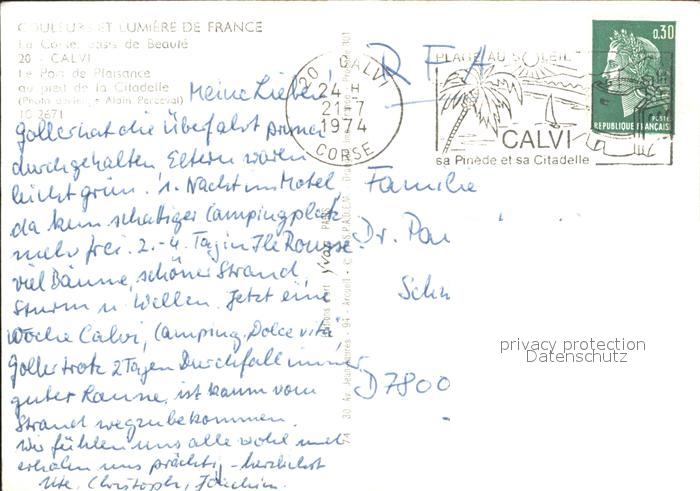 COULEURS ET LUMIÈRE DE FRANCE
La Corse, oasis de Beauté
20 - CALVI
Le Port de Plaisance
au pied de la Citadelle
(Photo Alain Perceval)
10 2671
Meine Lieben!
Goller hat die Überfahrt prima
durchgehalten Eltern waren
leicht grün. 1. Nacht im Motel,
da kein schattiger Campingplatz
mehr frei. 2.-4. Tag in Ile Rousse
viel Bäume, schöner Strand,
Sturm u. Wellen. Jetzt eine
Woche Calvi, Camping, Dolce vita
Goller trotz 2 Tagen Durchfall immer
guter Laune, ist kaum vom
Strand wegzubekommen.
Wir fühlen uns alle wohl und
erholen uns prächtig - herzlichst
Ute, Christoph, Joachim.
20 CALVI
24 H
21-7
1974
CORSE
PLAGE AU SOLEIL
CALVI
sa Pinède et sa Citadelle
0,30
POSTE
REPUBLIQUE FRANÇAISE
R F A
Familie
Dr. Pau
Sch
D 7800
yvon
PARIS
74 30 Av. Jean Jaurès - 94 - Arcueil
privacy protection
Datenschutz